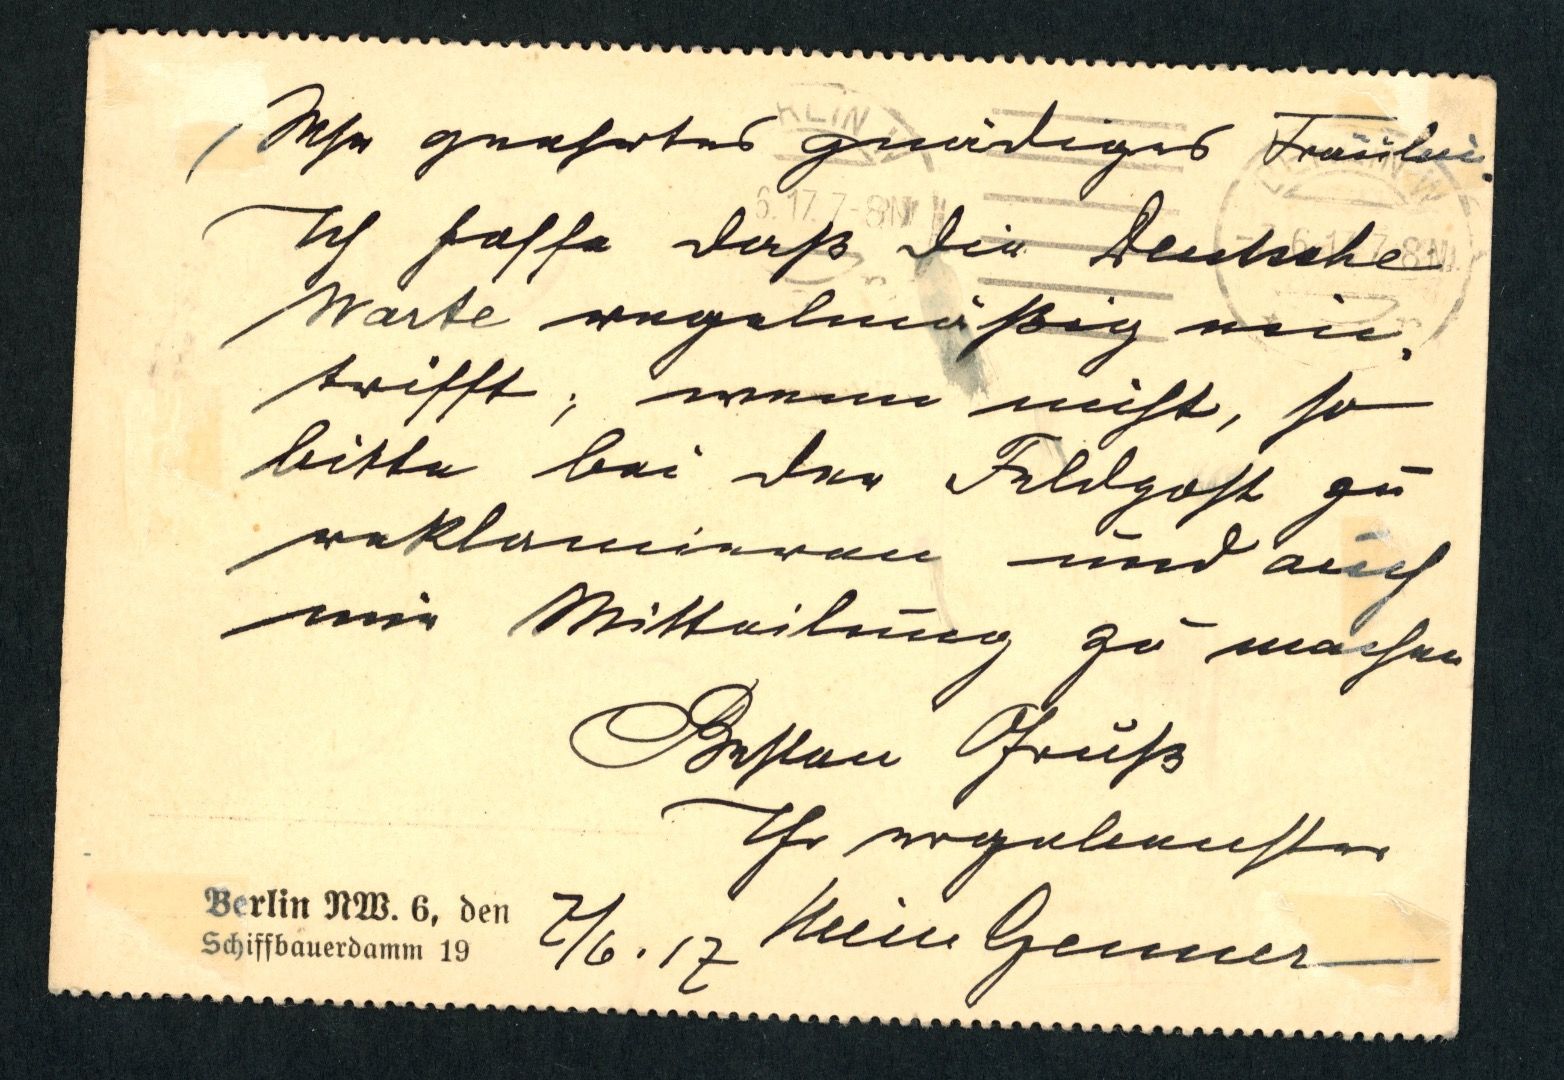 Sehr geehrtes gnädiges Fräulein.
Ich hoffe daß die Deutsche
Warte regelmäßig ein,
trifft, wenn nicht, so
bitte bei der Feldpost zu
reklamieren und auch
mir Mitteilung zu machen
Besten Gruß
Ihr ergebenster
Gemmer
Berlin NW. 6, den 7/6. 17
Schiffbauerdamm 19
RLIN
6.17.7-8N.
7.6.17.7-8N.